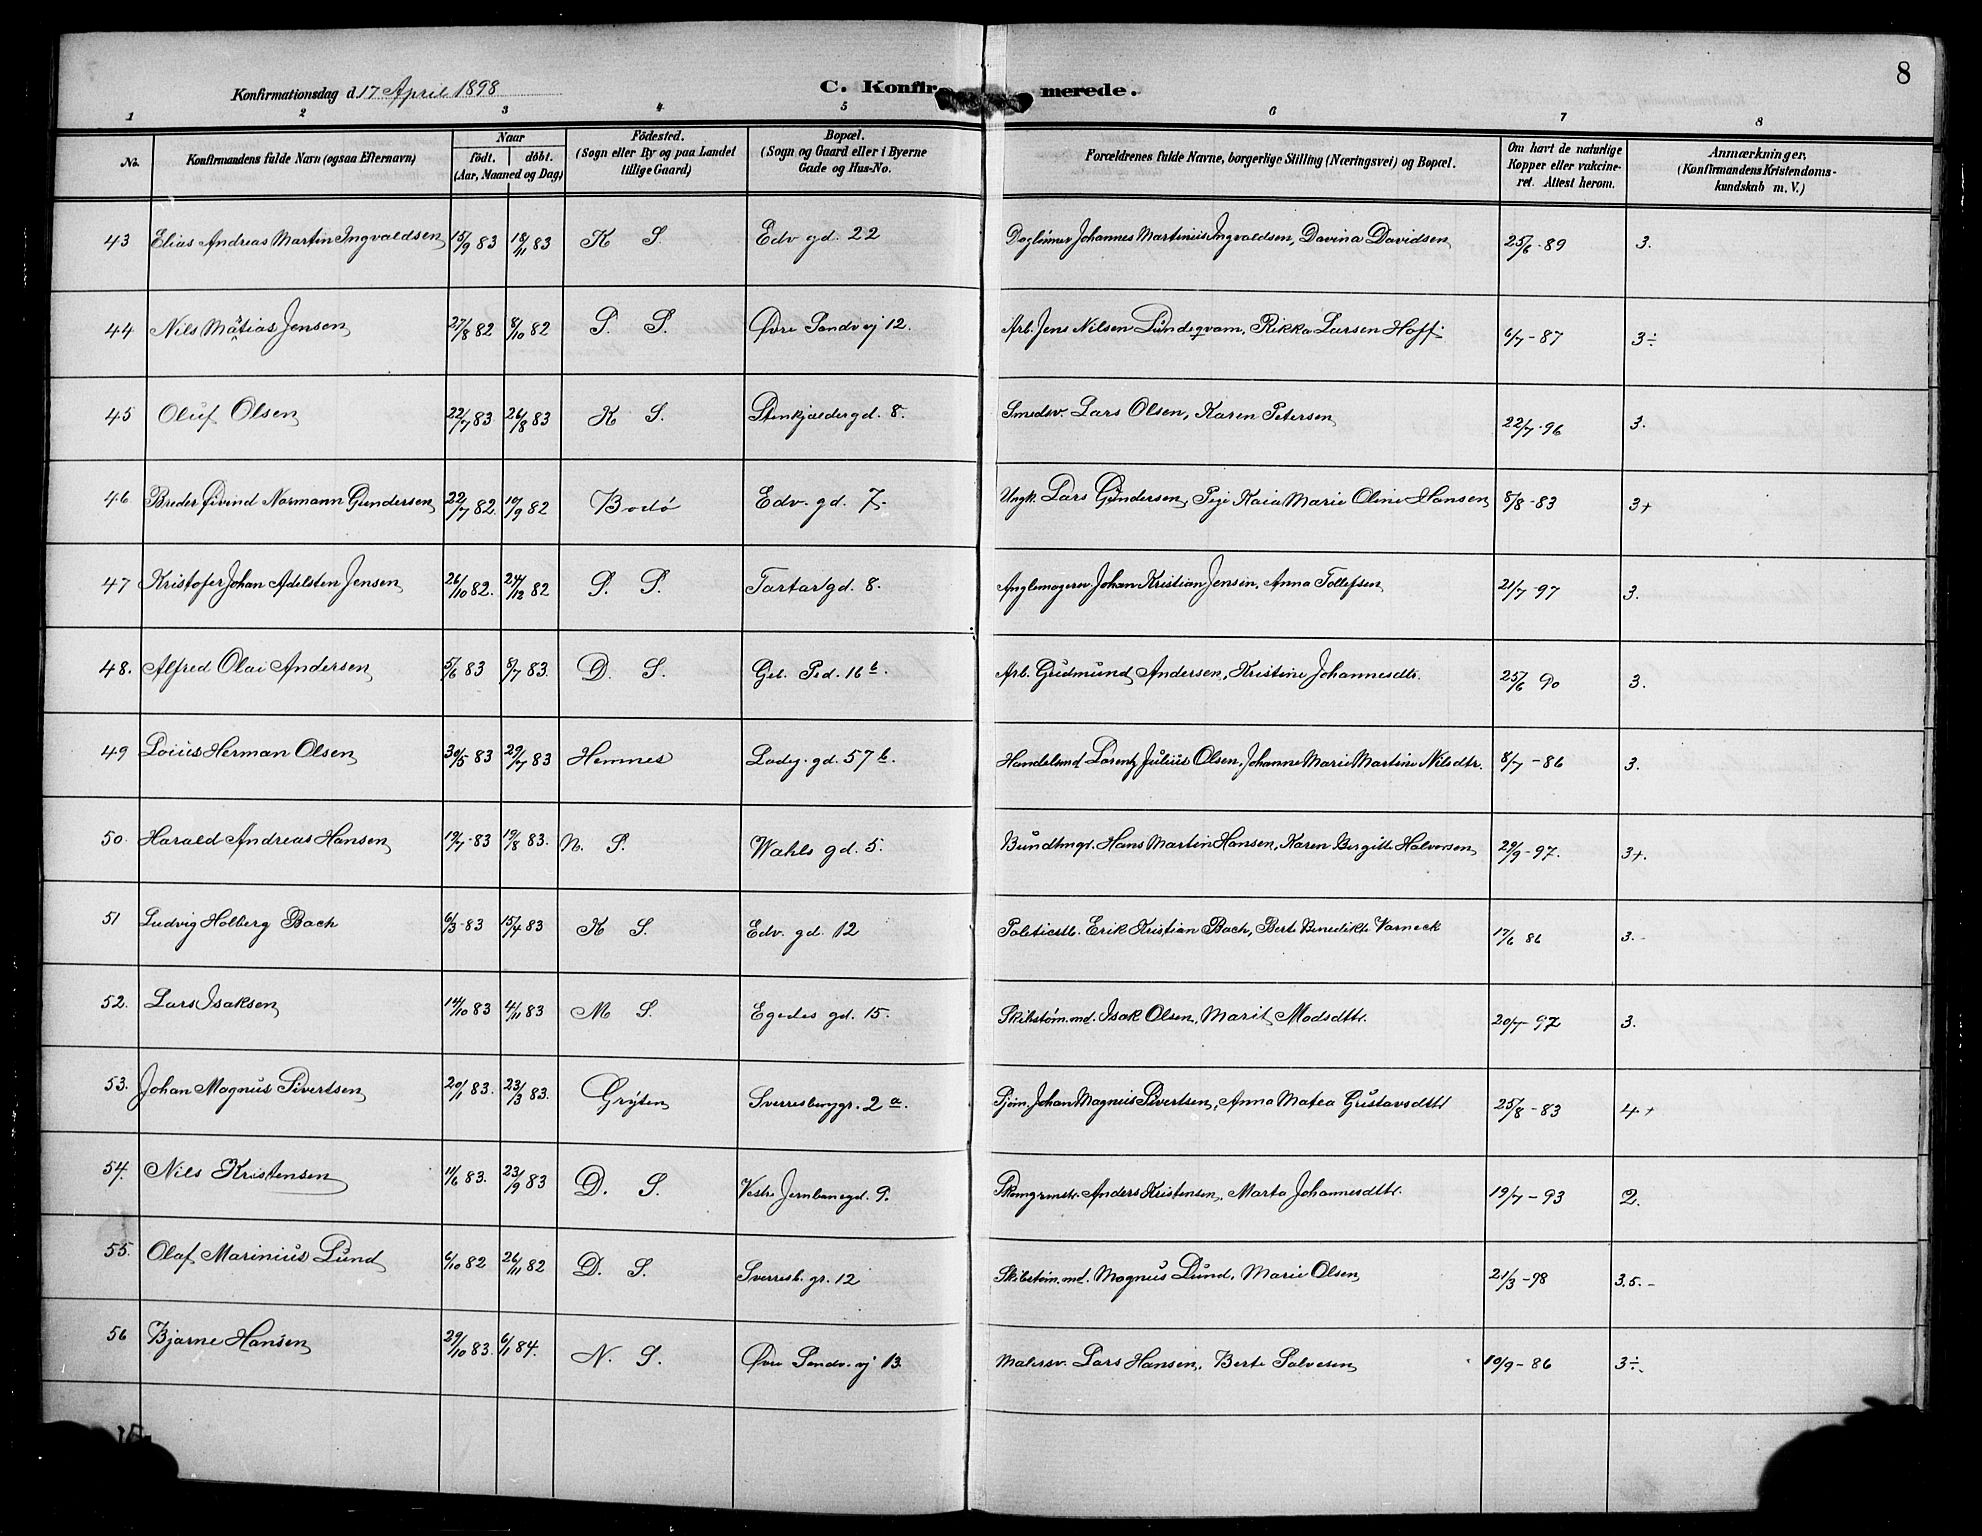 8
Konfirmationsdag d. 17 April 1898
C. Konfirmerede.
1 2 3 4 5 6 7 8
No. Konfirmandens fulde Navn (ogsaa Efternavn) Naar födt. döbt. (Aar, Maaned og Dag) Födested. (Sogn eller By og paa Landet tillige Gaard) Bopæl. (Sogn og Gaard eller i Byerne Gade og Hus-No. Forældrenes fulde Navne, borgerlige Stilling (Næringsvei) og Bopæl. Om havt de naturlige Kopper eller vakcineret. Attest herom. Anmærkninger. (Konfirmandens Kristendomskundskab m. V.)
43 Elias Andreas Martin Ingvaldsen 15/9 83 18/11 83 K S. Edv gd. 22 Daglönner Johannes Martinius Ingvaldsen, Davina Davidsen 25/6-89 3.
44 Nils Matias Jensen 27/8 82 8/10 82 S. S. Øvre Sandv vj 12. Arb. Jens Nilsen Lundeqvam, Rikka Larsen Hoff 6/7-87 3÷
45 Oluf Olsen 22/7 83 26/8 83 K S. Stenkjældergd. 8. Smedsv. Lars Olsen, Karen Petersen 22/7-96 3.
46 Breder Øivind Normann Gundersen 22/7 82. 10/9 82 Bodö Edv. gd. 7. Ungk. Lars Gundersen, Pige Kaia Marie Oline Hansen 8/8-83 3+
47 Kristofer Johan Adelsten Jensen 26/10 82. 24/12 82 S. S. Tartargd. 8. Anglemager Johan Kristian Jensen, Anna Tollefsen 21/7-97 3.
48. Alfred Olai Andersen 5/6 83 8/7 83. D. S. Geb. Ped. 16 b. Arb. Gudmund Andersen, Kristine Johannesdtr. 25/6 90 3.
49 Loius Herman Olsen 30/5 83 29/7 83 Hemnes Ladeg. gd. 57 b. Handelsmd Lorentz Julius Olsen, Johanne Marie Martine Nilsdtr. 8/7-86 3.
50. Harald Andreas Hansen 19/7-83 19/8 83. N. S. Wahls gd. 5. Bundtmgr. Hans Martin Hansen, Karen Bergitte Halvorsen 29/9-97. 3+.
51 Ludvig Holberg Bach 6/3-83 15/4 83 K S. Edv. gd. 12 Politiestb. Erik Kristian Bach, Berte Benedikte Varneck 17/6 86 3.-
52. Lars Isaksen 14/10 83 4/11 83 M S. Egedes gd. 15. Skibstöm.md. Isak Olsen, Marit Madsdtr. 20/7-97 3.
53. Johan Magnus Sivertsen 20/1 83. 23/3 83. Gryten Sverresborggr. 2 a. Sjöm. Johan Magnus Sivertsen, Anna Matea Gustavsdtr 25/8-83 4+
54. Nils Kristensen 11/6 83. 23/9 83 D. S. Vestre Jernbanegd. 9. Skomgrmstr. Anders Kristensen, Marta Johannesdtr. 19/7-93 2.
55. Olaf Marinius Lund 6/10 82 26/11 82 D. S. Sverresb. gr. 12 Skibstöm.md. Magnus Lund, Marie Olsen 21/3-98 3.5.-
56 Bjarne Hansen 29/10 83. 6/1 84. N. S. Øvre Sandv. vj 13. Malersv. Lars Hansen, Berte Salvesen 10/9-86 3÷